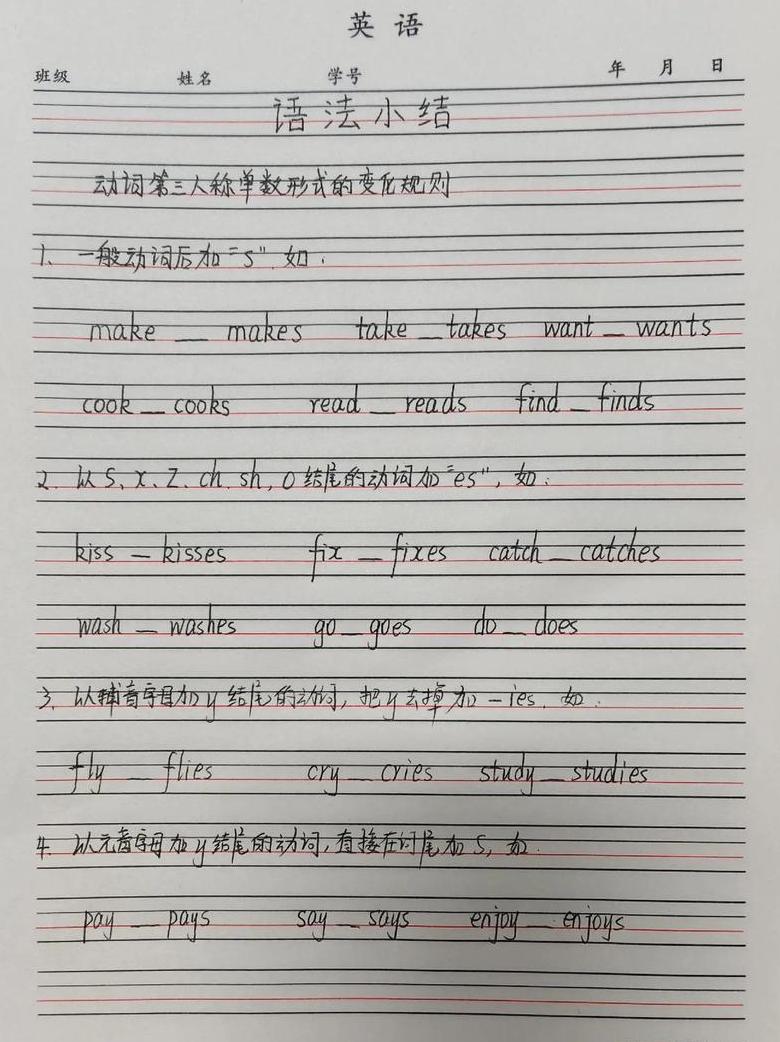 英语
班级 姓名 学号 年 月 日
语法小结
动词第三人称单数形式的变化规则
1、一般动词后加“s”如：
make — makes take — takes want — wants
cook — cooks read — reads find — finds
2. 以s、x、z、ch、sh，o结尾的动词加“es”，如：
kiss — kisses fix — fixes catch — catches
wash — washes go — goes do — does
3、以辅音字母加y结尾的动词，把y去掉加-ies、如：
fly — flies cry — cries study — studies
4、以元音字母加y结尾的动词，直接在词尾加s，如：
pay — pays say — says enjoy — enjoys